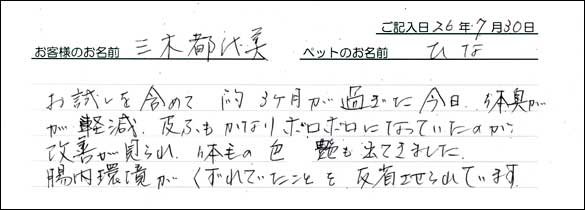 ご記入日26年7月30日
お客様のお名前 三木都代美 ペットのお名前 ひな
お試しを含めて 約3ヶ月が過ぎた今日、体臭が
が軽減、皮ふもかなりボロボロになっていたのが
改善が見られ、体毛の色 艶も出てきました。
腸内環境がくずれていたことを反省させられています